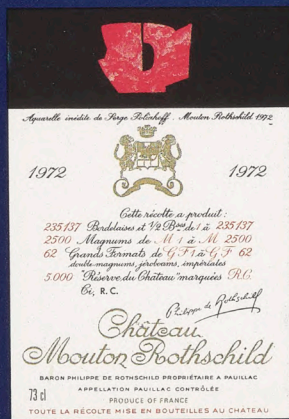 Aquarelle inédite de Serge Poliakoff . Mouton Rothschild 1972
1972 1972
Cette récolte a produit :
235137 Bordelaises et 1/2 Bses de 1 à 235137
2500 Magnums de M 1 à M 2500
62 Grands Formats de G F 1 à G F 62
double-magnums, jéroboams, impériales
5.000 "Réserve du Château" marquées R.C.
Ci, R. C.
Philippe de Rothschild
Château
Mouton Rothschild
BARON PHILIPPE DE ROTHSCHILD PROPRIÉTAIRE A PAUILLAC
APPELLATION PAUILLAC CONTRÔLÉE
73 cl PRODUCE OF FRANCE
TOUTE LA RÉCOLTE MISE EN BOUTEILLES AU CHÂTEAU